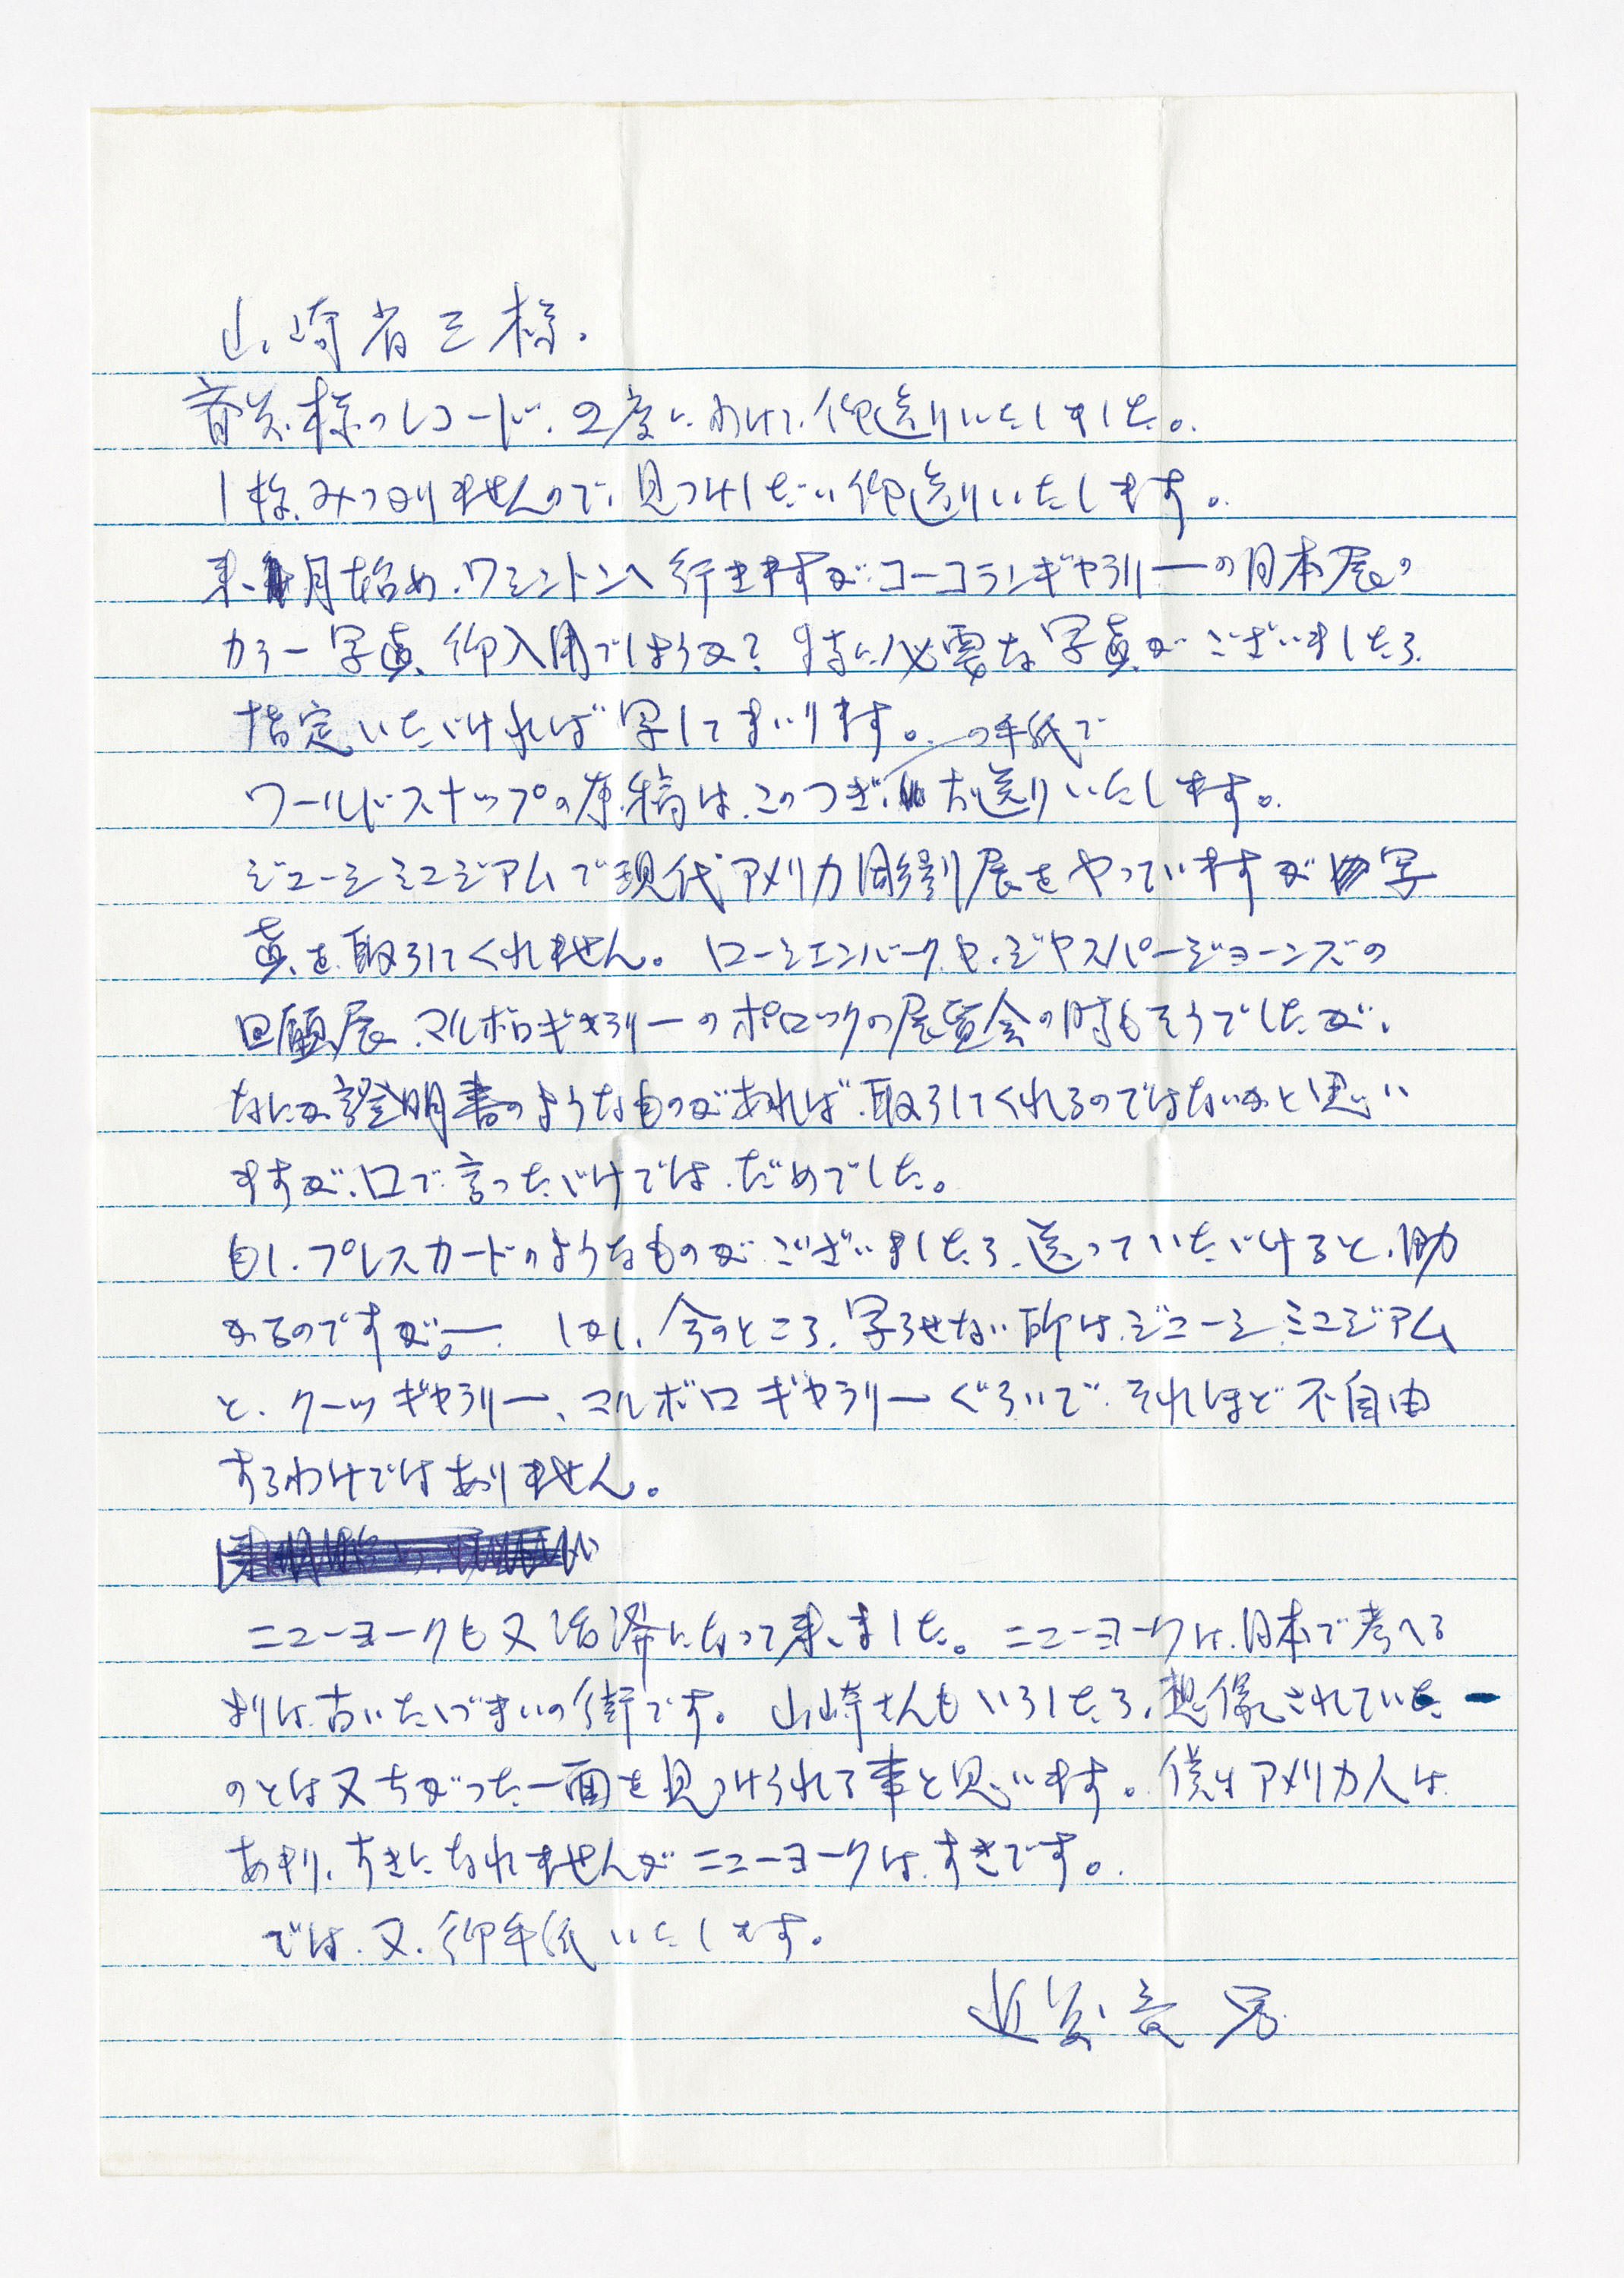 山崎省三様。
様のレコード、2度にわけて、御送りいたしました。
1枚、みつかりませんので、見つけしだい御送りいたします。
来月始め、ワシントンへ行きますが、コーコランギャラリーの日本展の
カラー写真、御入用でしょうか？特に必要な写真がございましたら
指定いただければ写してまいります。
の手紙で
ワールドスナップの原稿は、このつぎお送りいたします。
ジューシミュジアムで現代アメリカ彫刻展をやっていますが写
真を取らしてくれません。ローシエンバーク、や、ジャスパージョーンズの
回顧展、マルボロギャラリーのポロックの展覧会の時もそうでしたが、
なにか証明書のようなものがあれば、取らしてくれるのではないかと思い
ますが、口で言っただけでは、だめでした。
もし、プレスカードのようなものがございましたら、送っていただけると、助
かるのですが。ー しかし、今のところ、写らせない所は、ジューシミュジアム
と、クーツギャラリー、マルボロギャラリーぐらいで、それほど不自由
するわけではありません。
ニューヨークも又活溌になって来ました。ニューヨークは、日本で考へる
よりは、古いたたずまいの街です。山崎さんもいらしたら、想像されていた
のとは又ちがった一面を見つけられる事と思います。僕はアメリカ人は、
あまり、すきになれませんがニューヨークは、すきです。
では、又、御手紙いたします。
近藤竜男